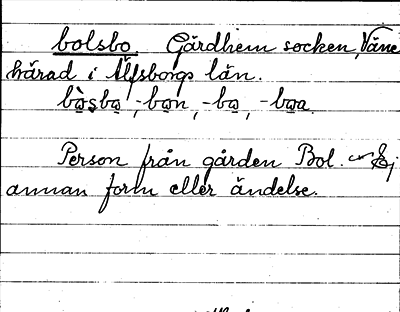 bolsbo. Gärdhem socken, Väne
härad i Älfsborgs län.
bo̠̊sbo̠, -bo̠n, -bo̠, -bo̠a.
Person från gården Bol. ~ Ej
annan form eller ändelse.